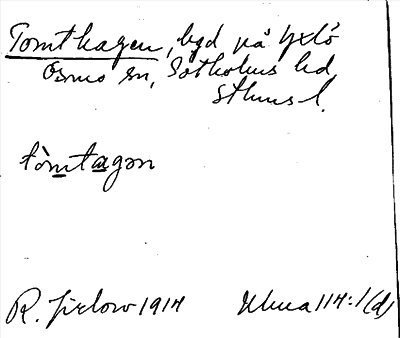 Tomthagen, bgd på Yxlö
Ösmo sn, Sotholms hd,
Sthms l.
tòmtagən
R. Jirlow 1914 Ulma 114:1(d)